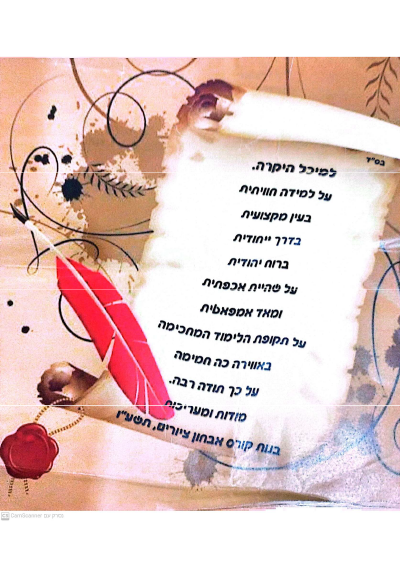 בס"ד
למיכל היקרה.
על למידה חוויתית
בעין מקצועית
בדרך ייחודית
ברוח יהודית
על שהיית אכפתית
ומאד אמפאטית
על תקופת הלימוד המחכימה
באווירה כה חמימה
על כך תודה רבה.
מודות ומעריכות
בנות קורס אבחון ציורים, תשע"ו
CamScanner